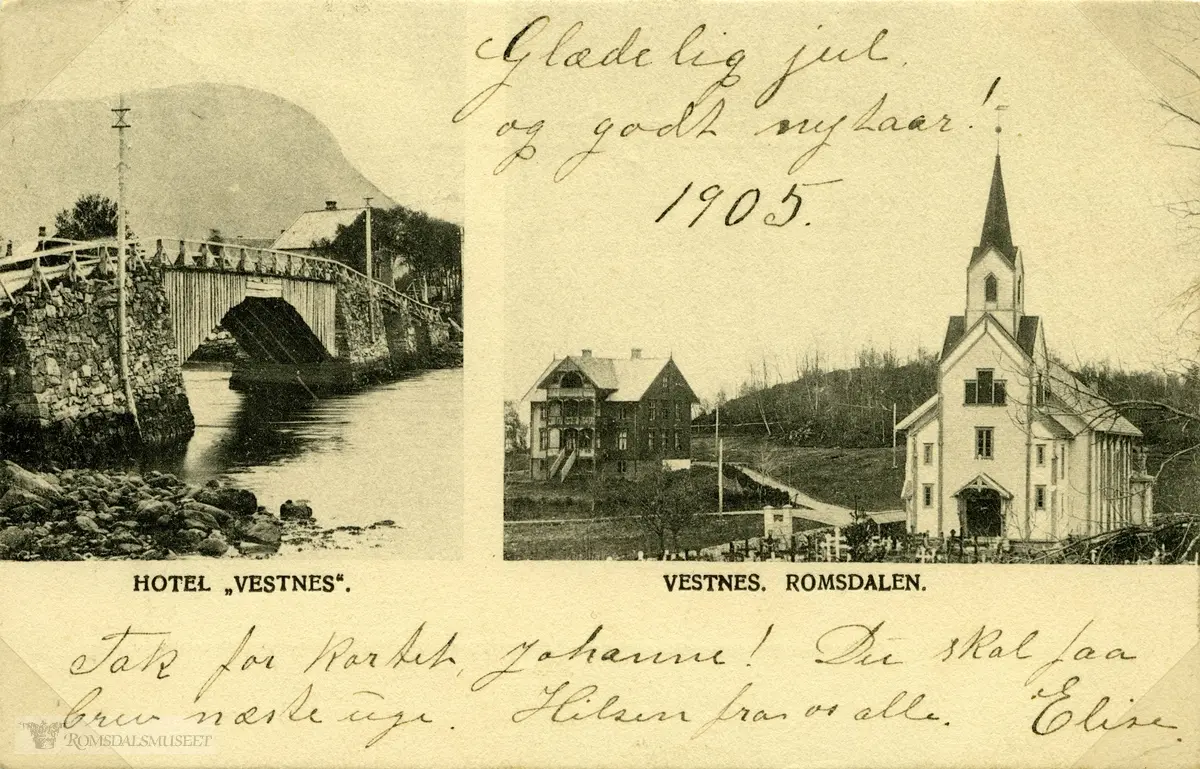 Glædelig jul.
og godt nytaar!
1905.
HOTEL „VESTNES“.
VESTNES. ROMSDALEN.
Tak for kortet, Johanne! Du skal faa
brev næste uge. Hilsen fra os alle. Elise.
ROMSDALSMUSEET